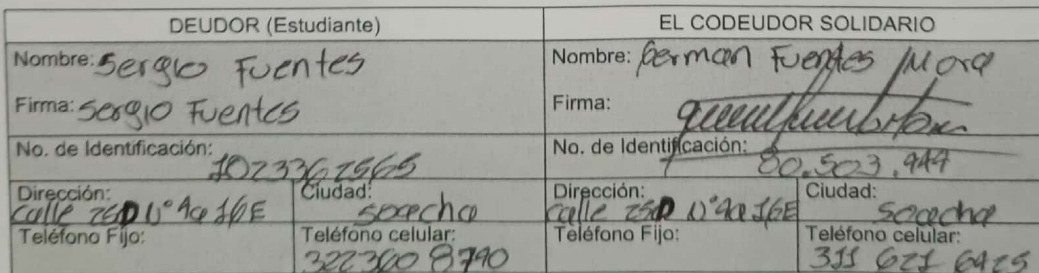 DEUDOR (Estudiante)
EL CODEUDOR SOLIDARIO
Nombre: Sergio Fuentes
Nombre: German Fuentes Mora
Firma: Sergio Fuentes
Firma:
No. de Identificación: 1023362565
No. de Identificación: 80.503.949
Dirección: calle 25D N° 4a 16E
Ciudad: soacha
Dirección: calle 25D N° 4a 16E
Ciudad: Soacha
Teléfono Fijo:
Teléfono celular: 322360 8790
Teléfono Fijo:
Teléfono celular: 311 621 6925